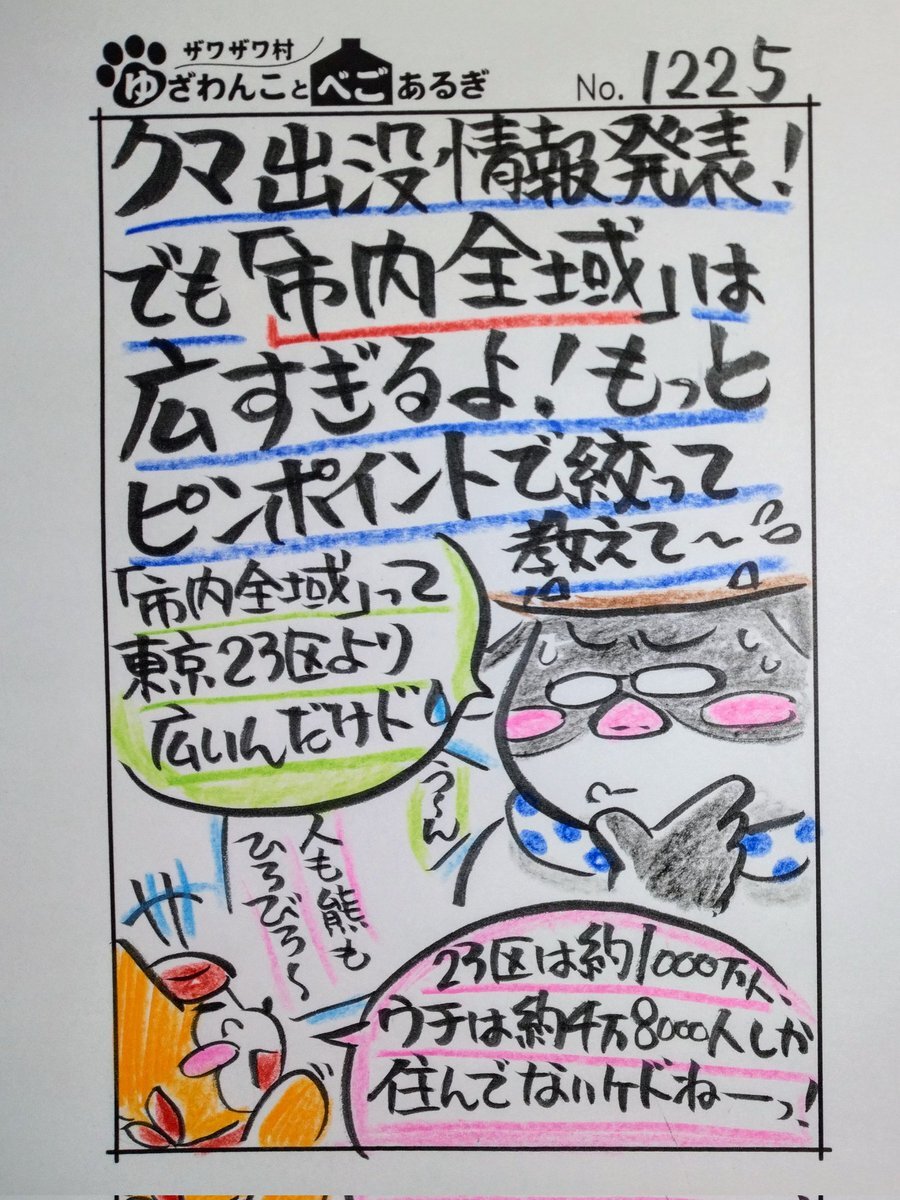 ザワザワ村
ゆざわんことべごあるぎ
No. 1225
クマ出没情報発表!
でも「市内全域」は
広すぎるよ!もっと
ピンポイントで絞って
教えて〜
「市内全域」って
東京23区より
広いんだけド
うーん
人も熊も
ひろびろ〜
23区は約1000万人、
ウチは約4万8000人しか
住んでないケドねーっ!